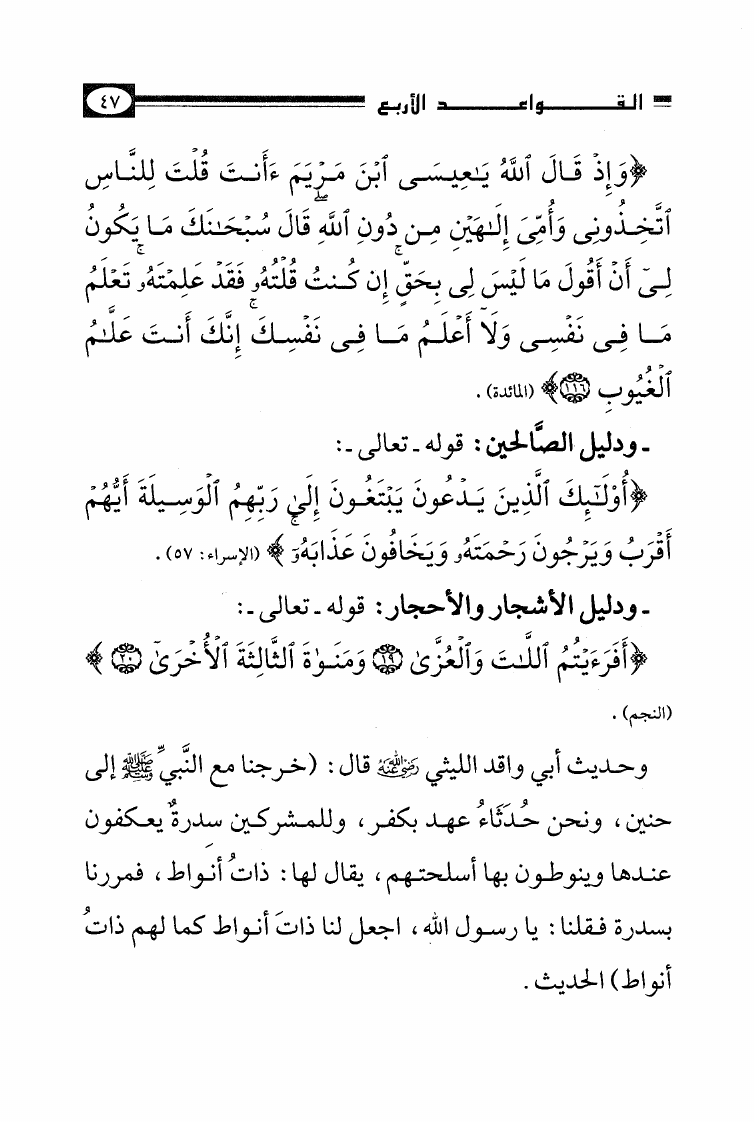 القواعد الأربع ٤٧
﴿وَإِذْ قَالَ ٱللَّهُ يَـٰعِيسَى ٱبْنَ مَرْيَمَ ءَأَنتَ قُلْتَ لِلنَّاسِ
ٱتَّخِذُونِى وَأُمِّىَ إِلَـٰهَيْنِ مِن دُونِ ٱللَّهِ ۖ قَالَ سُبْحَـٰنَكَ مَا يَكُونُ
لِىٓ أَنْ أَقُولَ مَا لَيْسَ لِى بِحَقٍّ ۚ إِن كُنتُ قُلْتُهُۥ فَقَدْ عَلِمْتَهُۥ ۚ تَعْلَمُ
مَا فِى نَفْسِى وَلَآ أَعْلَمُ مَا فِى نَفْسِكَ ۚ إِنَّكَ أَنتَ عَلَّـٰمُ
ٱلْغُيُوبِ ١١٦﴾ (المائدة).
ـ ودليل الصَّالحين: قوله ـ تعالى ـ:
﴿أُوْلَـٰٓئِكَ ٱلَّذِينَ يَدْعُونَ يَبْتَغُونَ إِلَىٰ رَبِّهِمُ ٱلْوَسِيلَةَ أَيُّهُمْ
أَقْرَبُ وَيَرْجُونَ رَحْمَتَهُۥ وَيَخَافُونَ عَذَابَهُۥٓ ۚ﴾ (الإسراء: ٥٧).
ـ ودليل الأشجار والأحجار: قوله ـ تعالى ـ:
﴿أَفَرَءَيْتُمُ ٱللَّـٰتَ وَٱلْعُزَّىٰ ١٩ وَمَنَوٰةَ ٱلثَّالِثَةَ ٱلْأُخْرَىٰٓ ٢٠﴾
(النجم).
وحديث أبي واقد الليثي رضي الله عنه قال: (خرجنا مع النَّبيِّ ﷺ إلى
حنين، ونحن حُدَثَاءُ عهد بكفر، وللمشركين سدرةٌ يعكفون
عندها وينوطون بها أسلحتهم، يقال لها: ذاتُ أنواط، فمررنا
بسدرة فقلنا: يا رسول الله، اجعل لنا ذاتَ أنواط كما لهم ذاتُ
أنواط) الحديث.